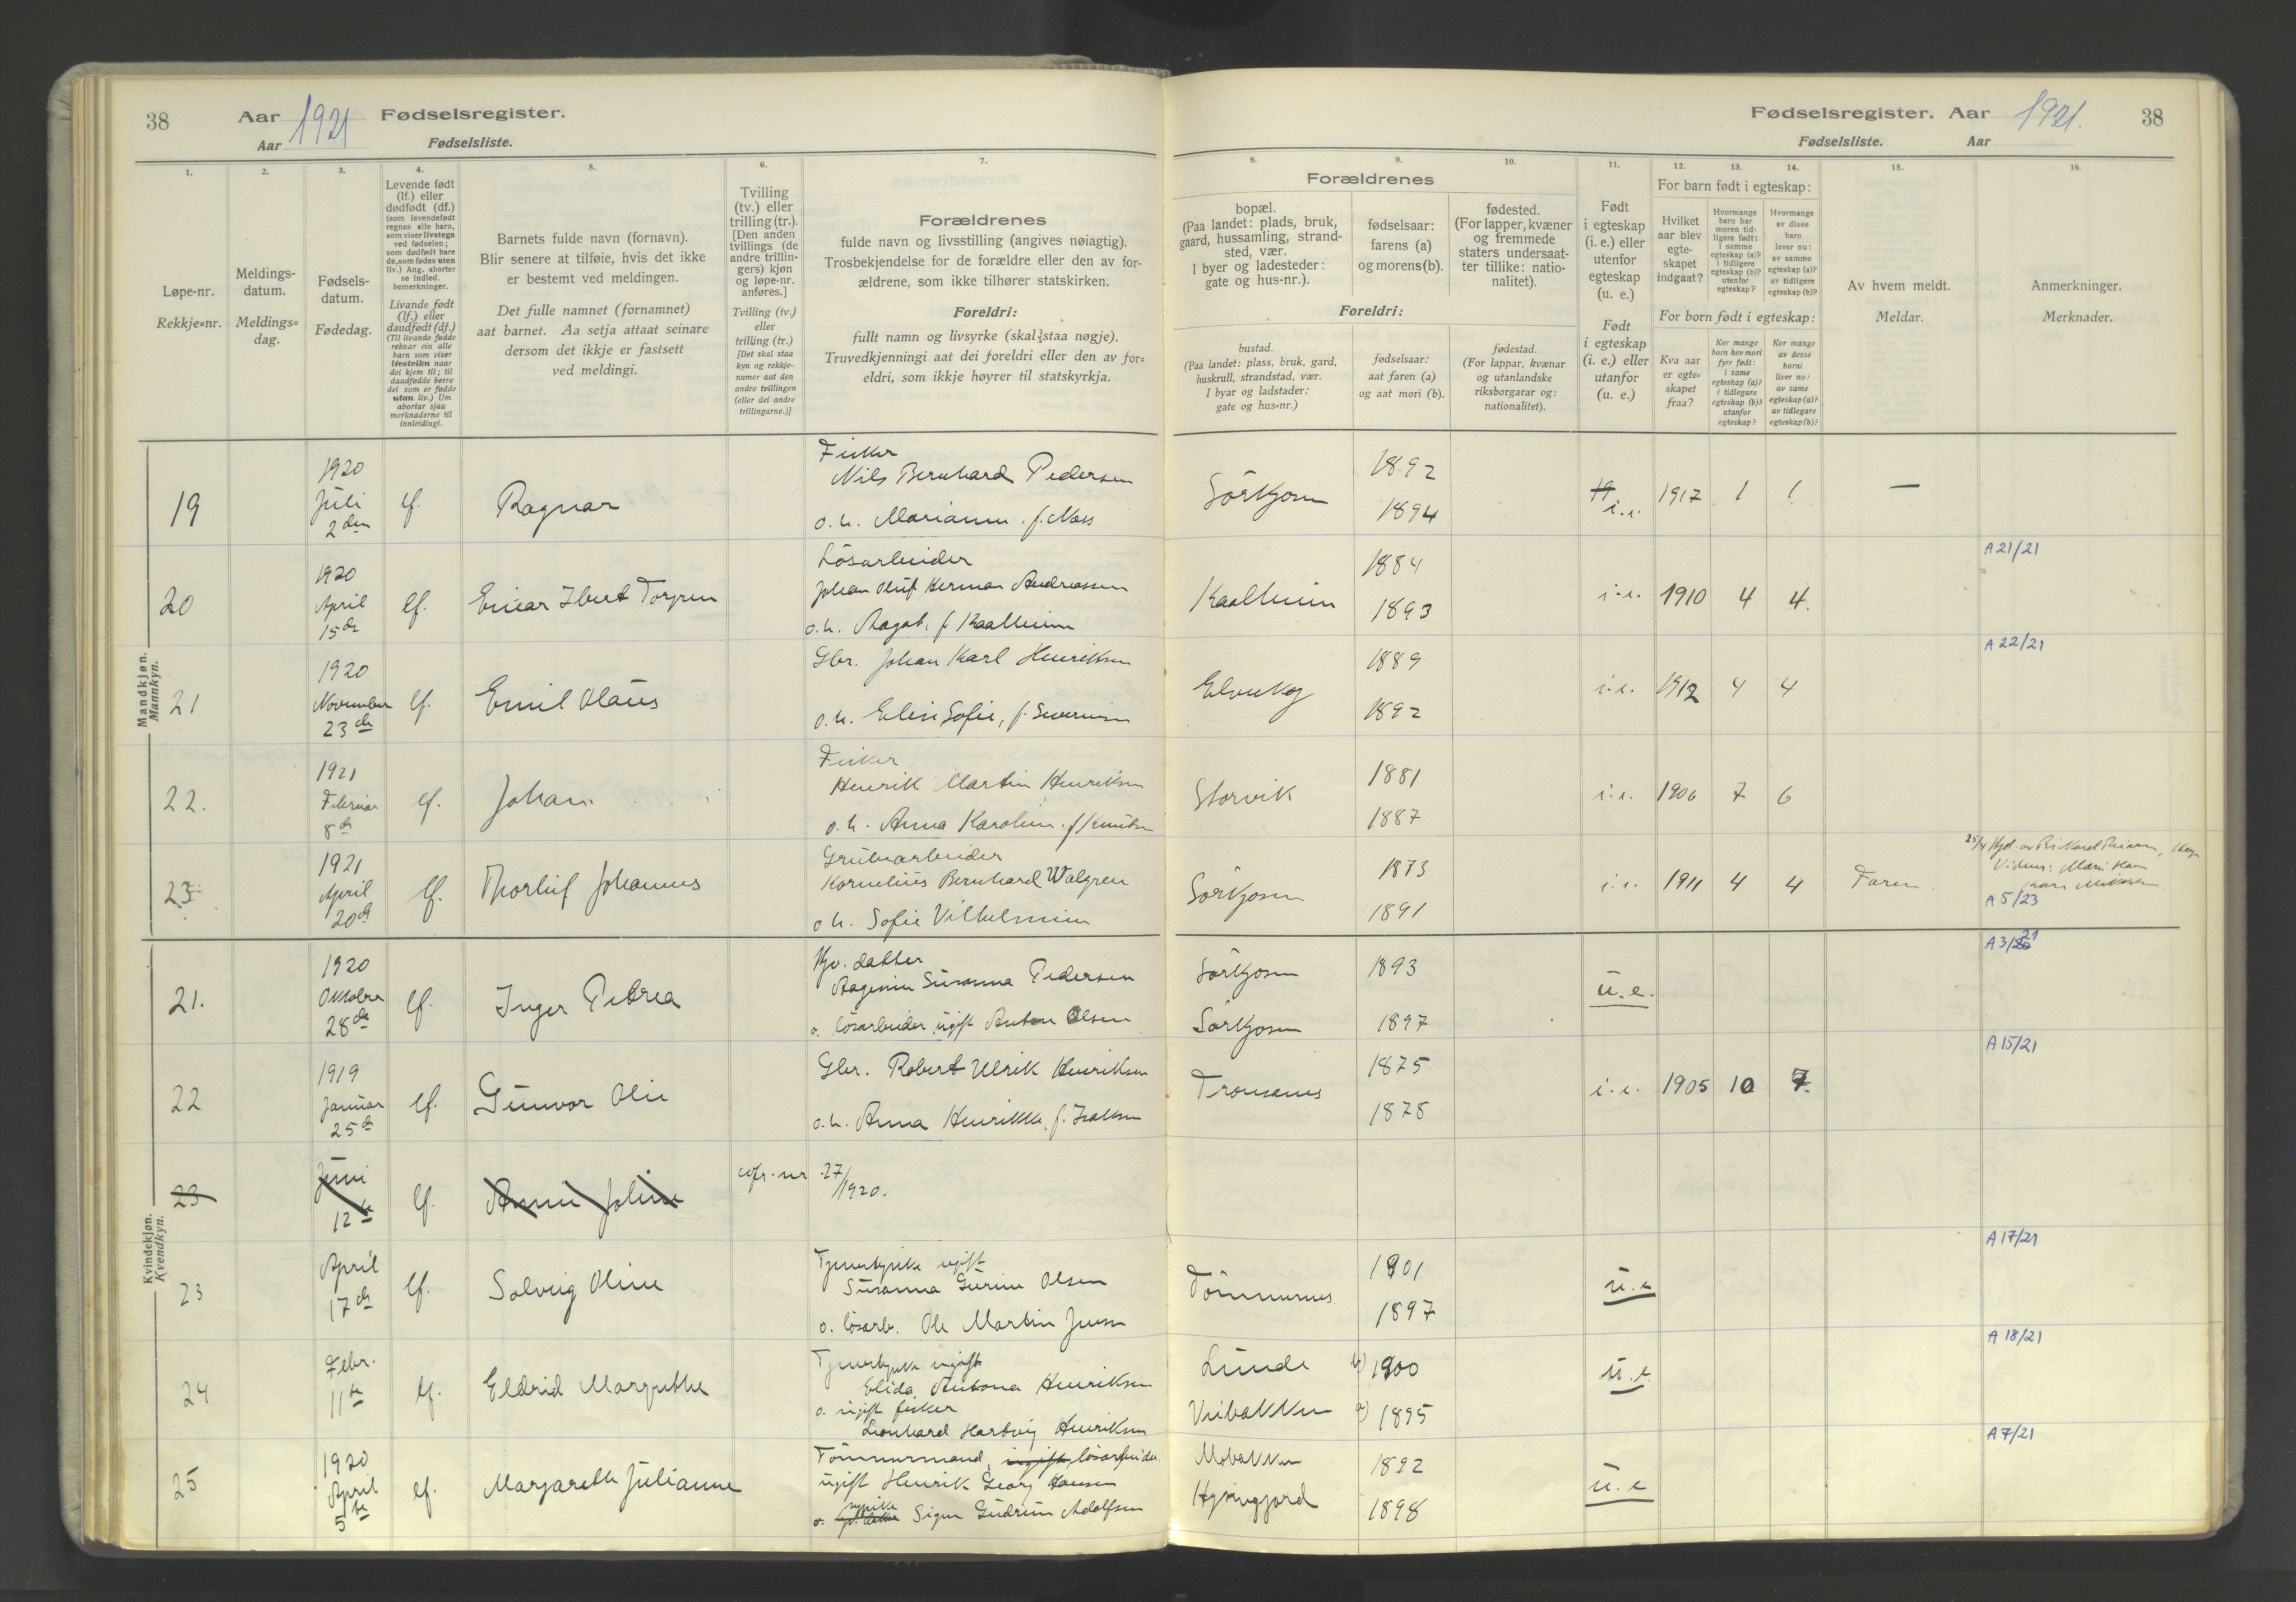 38
Aar 1921 Fødselsregister.
Aar Fødselsliste.
Fødselsregister. Aar 1921. 38
Fødselsliste. Aar
1. 2. 3. 4. 5. 6. 7. 8. 9. 10. 11. 12. 13. 14. 15. 16.
Løpe-nr.
Rekkje=nr.
Meldings-
datum.
Meldings=
dag.
Fødsels-
datum.
Fødedag.
Levende født
(lf.) eller
dødfødt (df.)
(som levendefødt
regnes alle barn,
som viser livstegn
ved fødselen;
som dødfødt bare
de, som fødes uten
liv.) Ang. aborter
se indled.
bemerkninger.
Livande født
(lf.) eller
daudfødt (df.)
(Til livande fødde
reknar ein alle
barn som viser
livsteikn naar
dei kjem til; til
daudfødde berre
dei som er fødde
utan liv.) Um
abortar sjaa
merknaderne til
innleidingi.
Barnets fulde navn (fornavn).
Blir senere at tilføie, hvis det ikke
er bestemt ved meldingen.
Det fulle namnet (fornamnet)
aat barnet. Aa setja attaat seinare
dersom det ikkje er fastsett
ved meldingi.
Tvilling
(tv.) eller
trilling (tr.).
[Den anden
tvillings (de
andre trillin-
gers) kjøn
og løpe-nr.
anføres.]
Tvilling (tv.)
eller
trilling (tr.)
[Det skal staa
kyn og rekkje-
numer aat den
andre tvillingen
(eller dei andre
trillingarne.)]
Forældrenes
fulde navn og livsstilling (angives nøiagtig).
Trosbekjendelse for de forældre eller den av for-
ældrene, som ikke tilhører statskirken.
Foreldri:
fullt namn og livsyrke (skal staa nøgje).
Truvedkjenningi aat dei foreldri eller den av for=
eldri, som ikkje høyrer til statskyrkja.
Forældrenes
bopæl.
(Paa landet: plads, bruk,
gaard, hussamling, strand-
sted, vær.
I byer og ladesteder:
gate og hus-nr.).
fødselsaar:
farens (a)
og morens (b).
fødested.
(For lapper, kvæner
og fremmede
staters undersaat-
ter tillike: natio-
nalitet).
Foreldri:
bustad.
(Paa landet: plass, bruk, gard,
huskrull, strandstad, vær.
I byar og ladstader:
gate og hus=nr.)
fødselsaar:
aat faren (a)
og aat mori (b).
fødestad.
(For lappar, kvænar
og utanlandske
riksborgarar og:
nationalitet).
Født
i egteskap
(i. e.) eller
utenfor
egteskap
(u. e.)
Født
i egteskap
(i. e.) eller
utanfor
(u. e.)
For barn født i egteskap:
Hvilket
aar blev
egte-
skapet
indgaat?
Hvormange
barn har
moren tid-
ligere født:
i samme
egteskap (a)?
i tidligere
egteskap (b)?
utenfor
egteskap?
Hvormange
av disse
barn
lever nu:
av samme
egteskap (a)?
av tidligere
egteskap (b)?
For born født i egteskap:
Kva aar
er egte=
skapet
fraa?
Kor mange
born hev mori
fyrr født:
i same
egteskap (a)?
i tidlegare
egteskap (b)?
utanfor
egteskap?
Kor mange
av desse
borni
liver no:
av same
egteskap (a)?
av tidlegare
egteskap (b)?
Av hvem meldt.
Meldar.
Anmerkninger.
Merknader.
Mandkjøn.
Mannkyn.
19 1920 Juli 2den lf. Ragnar
Fisker
Nils Bernhard Pedersen
o. h. Marianne f. Næss
Sörkjosen 1892 1894 i. e. 1917 1 1 —
20 1920 April 15de lf. Einar Torgren
Lösarbeider
Johan Oluf Herman Andreassen
o. h. Aagot f. Kaalheim
Kaalheim 1884 1893 i. e. 1910 4 4. A 21/21
21 1920 November 23de lf. Emil Olaus
Gbr. Johan Karl Henriksen
o. h. Elen Sofie, f. Severinsen
1889 1892 i. e. 1912 4 4 A 22/21
22. 1921 Februar 8de lf. Johan
Fisker
Henrik Martin Henriksen
o. h. Anna Karoline f. Knutsen
Storvik 1881 1887 i. e. 1906 7 6
23 1921 April 20de lf. Thorleif Johannes
Grubearbeider
Kornelius Bernhard Walgren
o h. Sofie Vilhelmine
Sörkjosen 1873 1891 i. e. 1911 4 4 Faren
A 5/23
Kvindekjøn.
Kvendkyn.
21. 1920 Oktober 28de lf. Inger Petrea
Gbr. datter
Susanna Pedersen
o. lösarbeider ugift Anton Olsen
Sörkjosen 1893
Sörkjosen 1897 u. e. A 3/21
22 1919 Januar 25de lf. Gunvor Olie
Gbr. Robert Ulrik Henriksen
o. h. Anna Henrikke, f. Isaksen
1875 1878 i. e. 1905 10 7 A 15/21
23 Juni 12te lf. Anna Joline cfr. nr 27/1920.
23 April 17de lf. Solveig Oline
Tjenestepike ugift
Susanna Gurine Olsen
o. lösarb. Ole Martin Jensen
Tömmernes 1901 1897 u. e A 17/21
24 Febr. 11te lf. Eldrid Margrethe
Tjenestepike ugift
Elida Antona Henriksen
o. ugift fisker
Leonhard Hartvig Henriksen
Lunde b) 1900
a) 1895 u. e. A 18/21
25 1920 April 5te lf. Margarethe Julianne
Tömmermand, ugift lösarbeider
ugift Henrik Georg Hansen
o. Signe Gudrun Adolfsen
Mobakken 1892
1898 u. e A 7/21